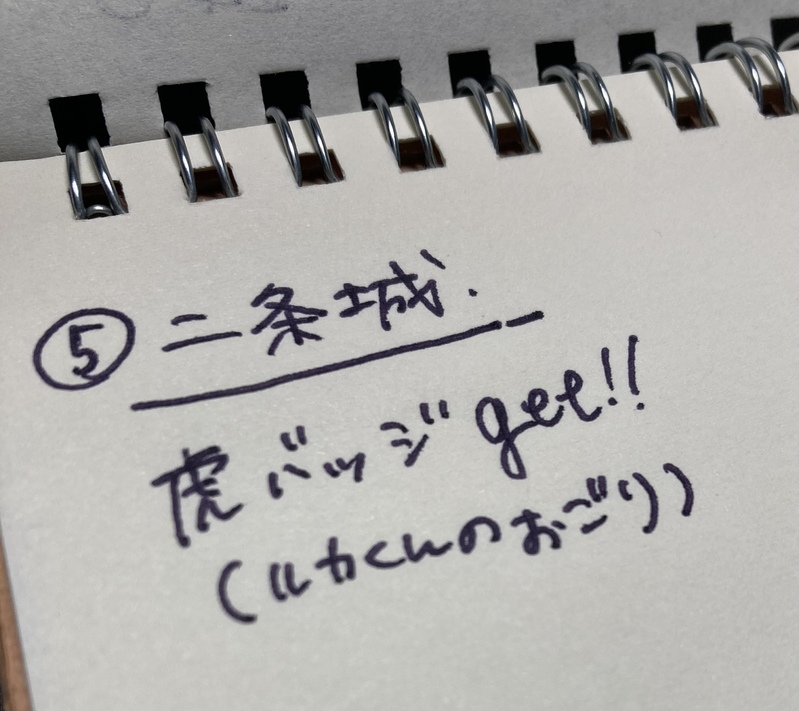 ⑤ 二条城.
虎バッジget!!
(ルカくんのおごり)